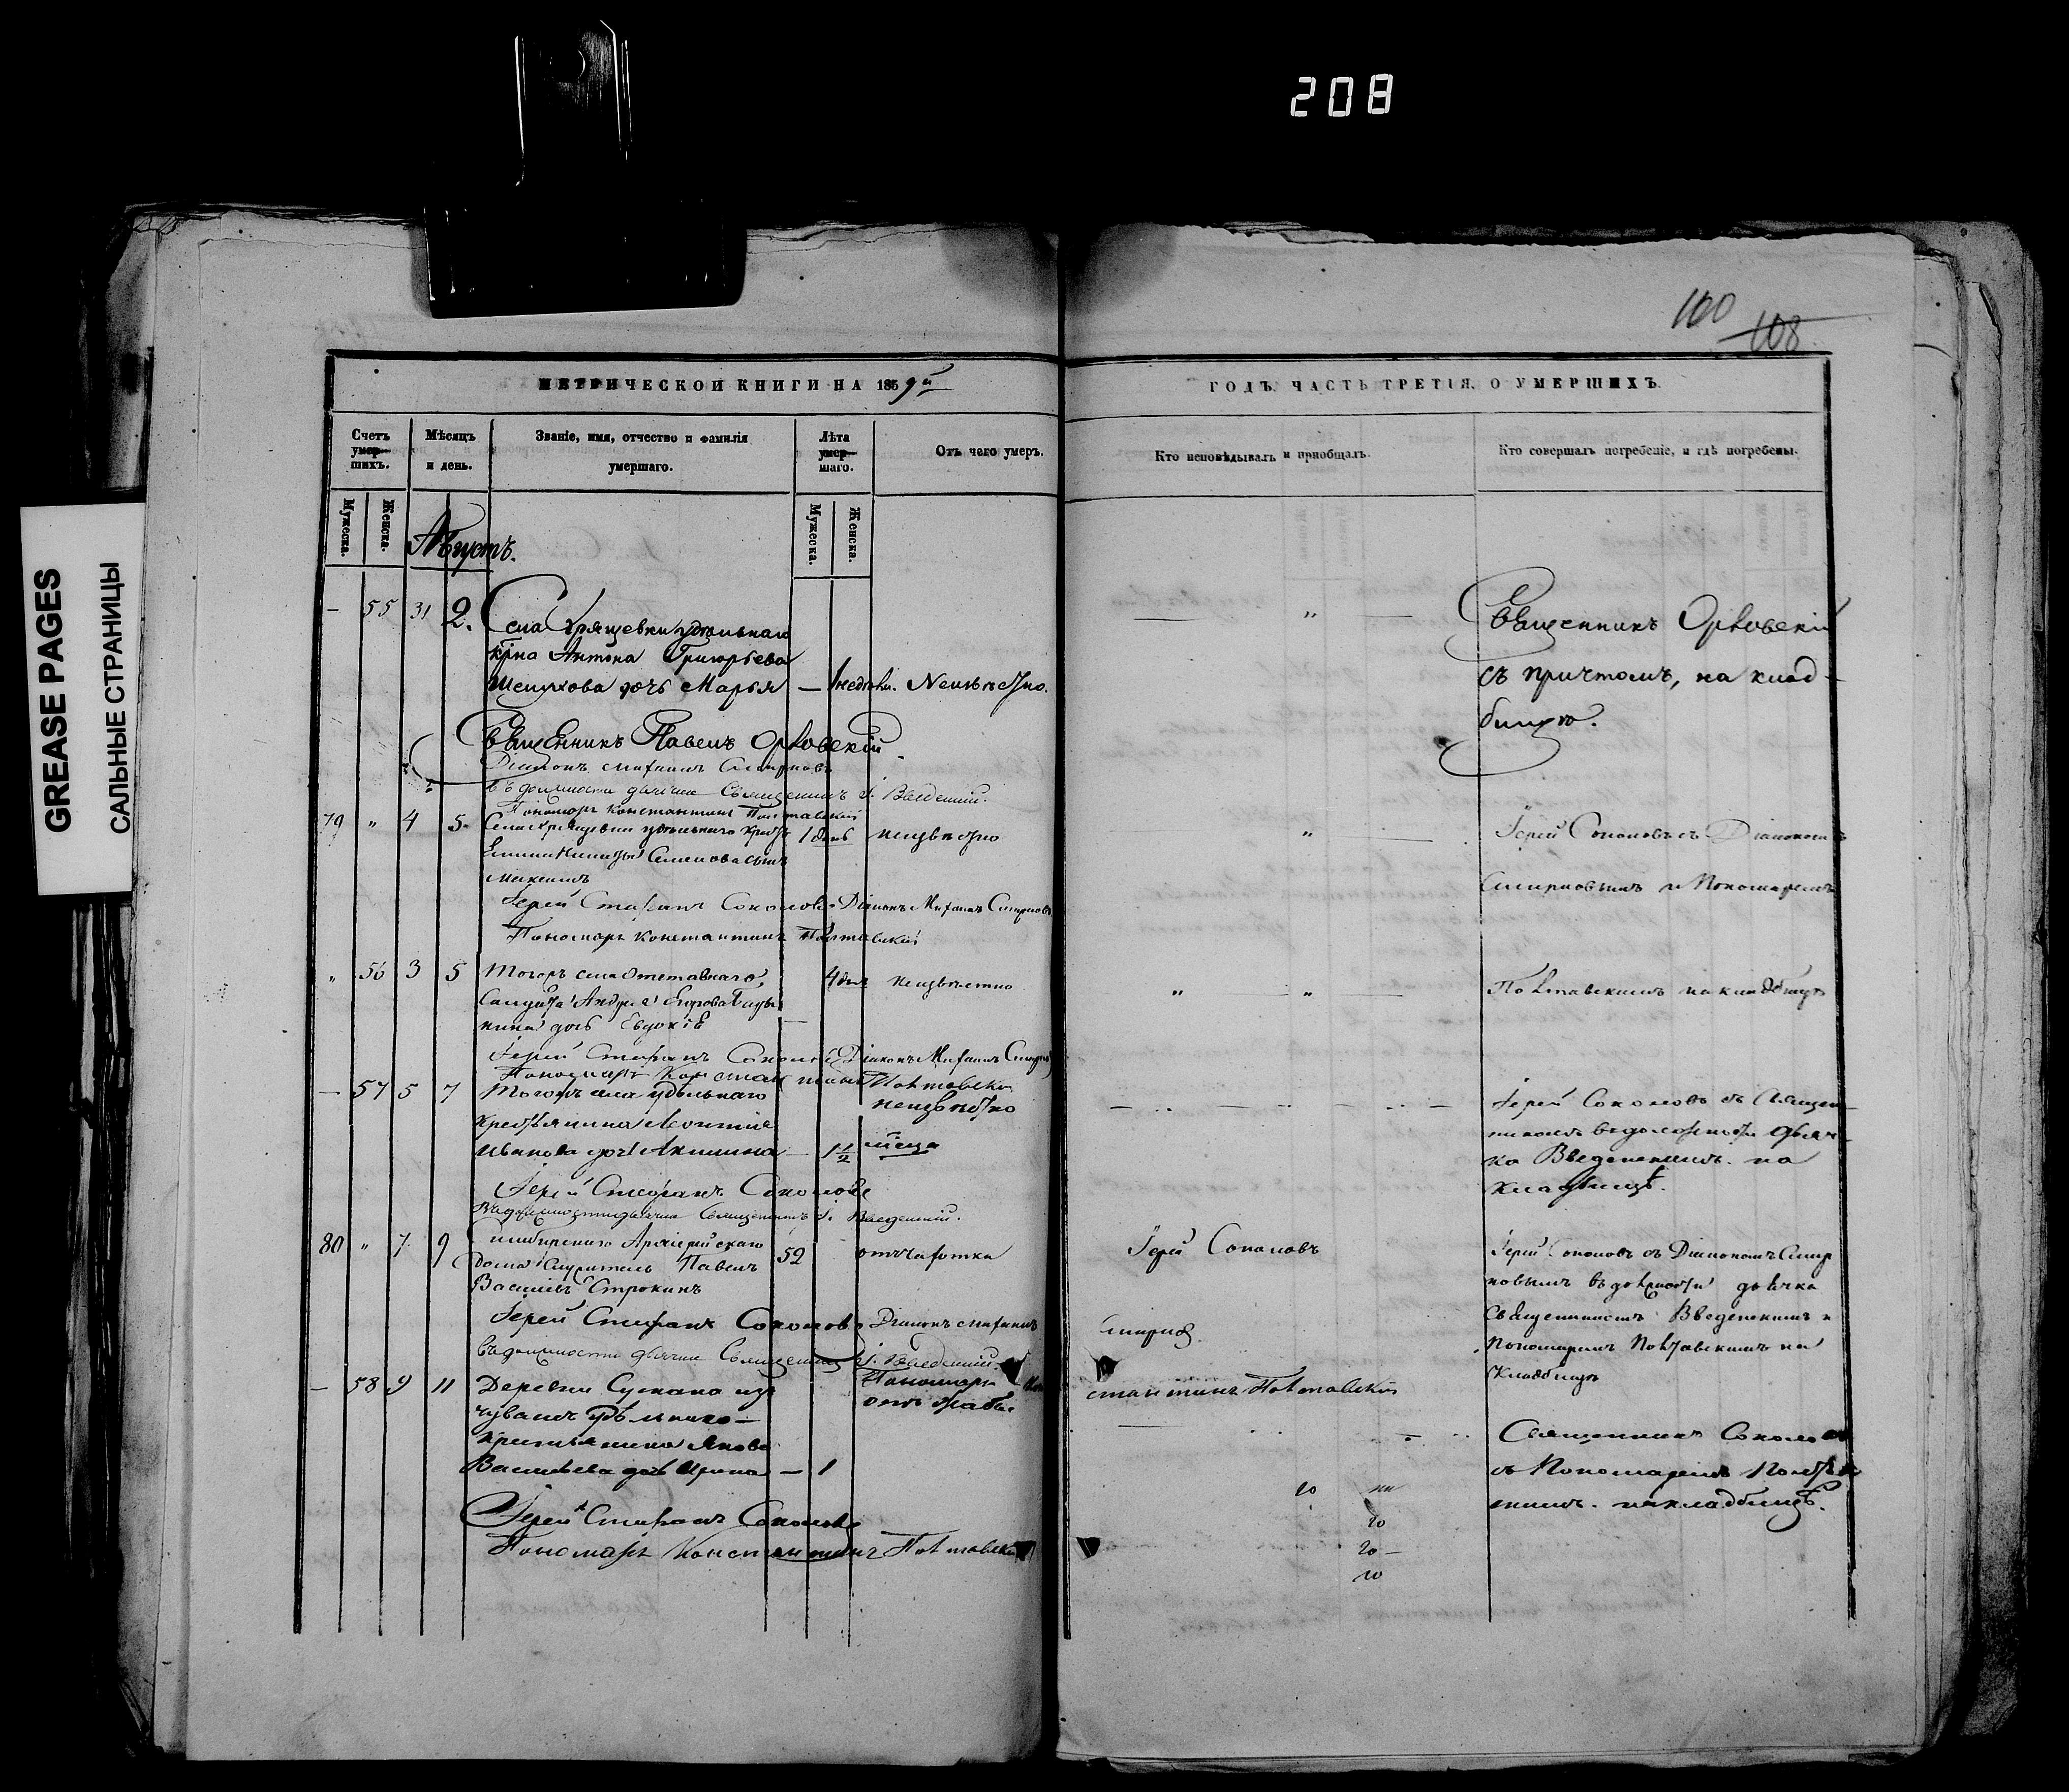 208
GREASE PAGES
САЛЬНЫЕ СТРАНИЦЫ
100
108
МЕТРИЧЕСКОЙ КНИГИ НА 1859й
ГОДЪ, ЧАСТЬ ТРЕТІЯ, О УМЕРШИХЪ.
Счетъ умер-шихъ.
Мѣсяцъ и день.
Званіе, имя, отчество и фамилія умершаго.
Лѣта умер-шаго.
Отъ чего умеръ.
Кто исповѣдывалъ и пріобщалъ.
Кто совершалъ погребеніе, и гдѣ погребены.
Мужеска.
Женска.
Мужеска.
Женска.
Августъ.
— 55 31 2.
Села Хрящевки удѣльнаго
крна Антона Григорьева
дочь Марья — 1 недѣли. Неизвѣстно.
Священникъ
съ причтомъ, на клад-
бищѣ.
Священникъ Павелъ
Діаконъ Михаилъ Смирновъ
въ должности дьячка Священникъ І. Введенскій.
Пономарь Константинъ Полтавскій
79 " 4 5.
Села Хрящевки удѣльнаго
Семенова сынъ
Максимъ
1 день неизвѣстно
Іерей Соколовъ съ Діакономъ
Смирновымъ и Пономаремъ
Іерей Стефанъ Соколовъ Діаконъ Михаилъ Смирновъ
Пономарь Константинъ Полтавскій
" 56 3 5
Тогожъ села отставнаго
Солдата Андрея Егорова
дочь Евдокія
4 дня неизвѣстно
Полтавскимъ на кладбищѣ
Іерей Стефанъ Соколовъ Діаконъ Михаилъ Смирновъ
Пономарь Константинъ Полтавскій
— 57 5 7
Тогожъ села удѣльнаго
крестьянина Леонтія
Иванова дочь Акилина — 1 1/2 мѣсца
неизвѣстно
Іерей Соколовъ съ Священ-
никомъ въ должности дьяч-
ка Введенскимъ на
кладбищѣ.
Іерей Стефанъ Соколовъ
въ должности дьячка Священникъ І. Введенскій.
80 " 7 9
Симбирскаго Архіерейскаго
дома Павелъ
Васильевъ Строкинъ
52 отъ чахотки
Іерей Соколовъ
Іерей Соколовъ съ Діакономъ Смир
новымъ въ должности дьячка
Священникомъ Введенскимъ и
Пономаремъ Полтавскимъ на
кладбищѣ
Іерей Стефанъ Соколовъ Діаконъ Михаилъ
Смирновъ
въ должности дьячка Священникъ І. Введенскій.
Пономарь Кон
стантинъ Полтавскій
— 58 9 11
Деревни изъ
чувашъ удѣльнаго
крестьянина Якова
Васильева дочь Ирина — 1
Священникъ Соколовъ
съ Пономаремъ Полтав
скимъ. на кладбищѣ.
Іерей Стефанъ Соколовъ
Пономарь Константинъ Полтавскій